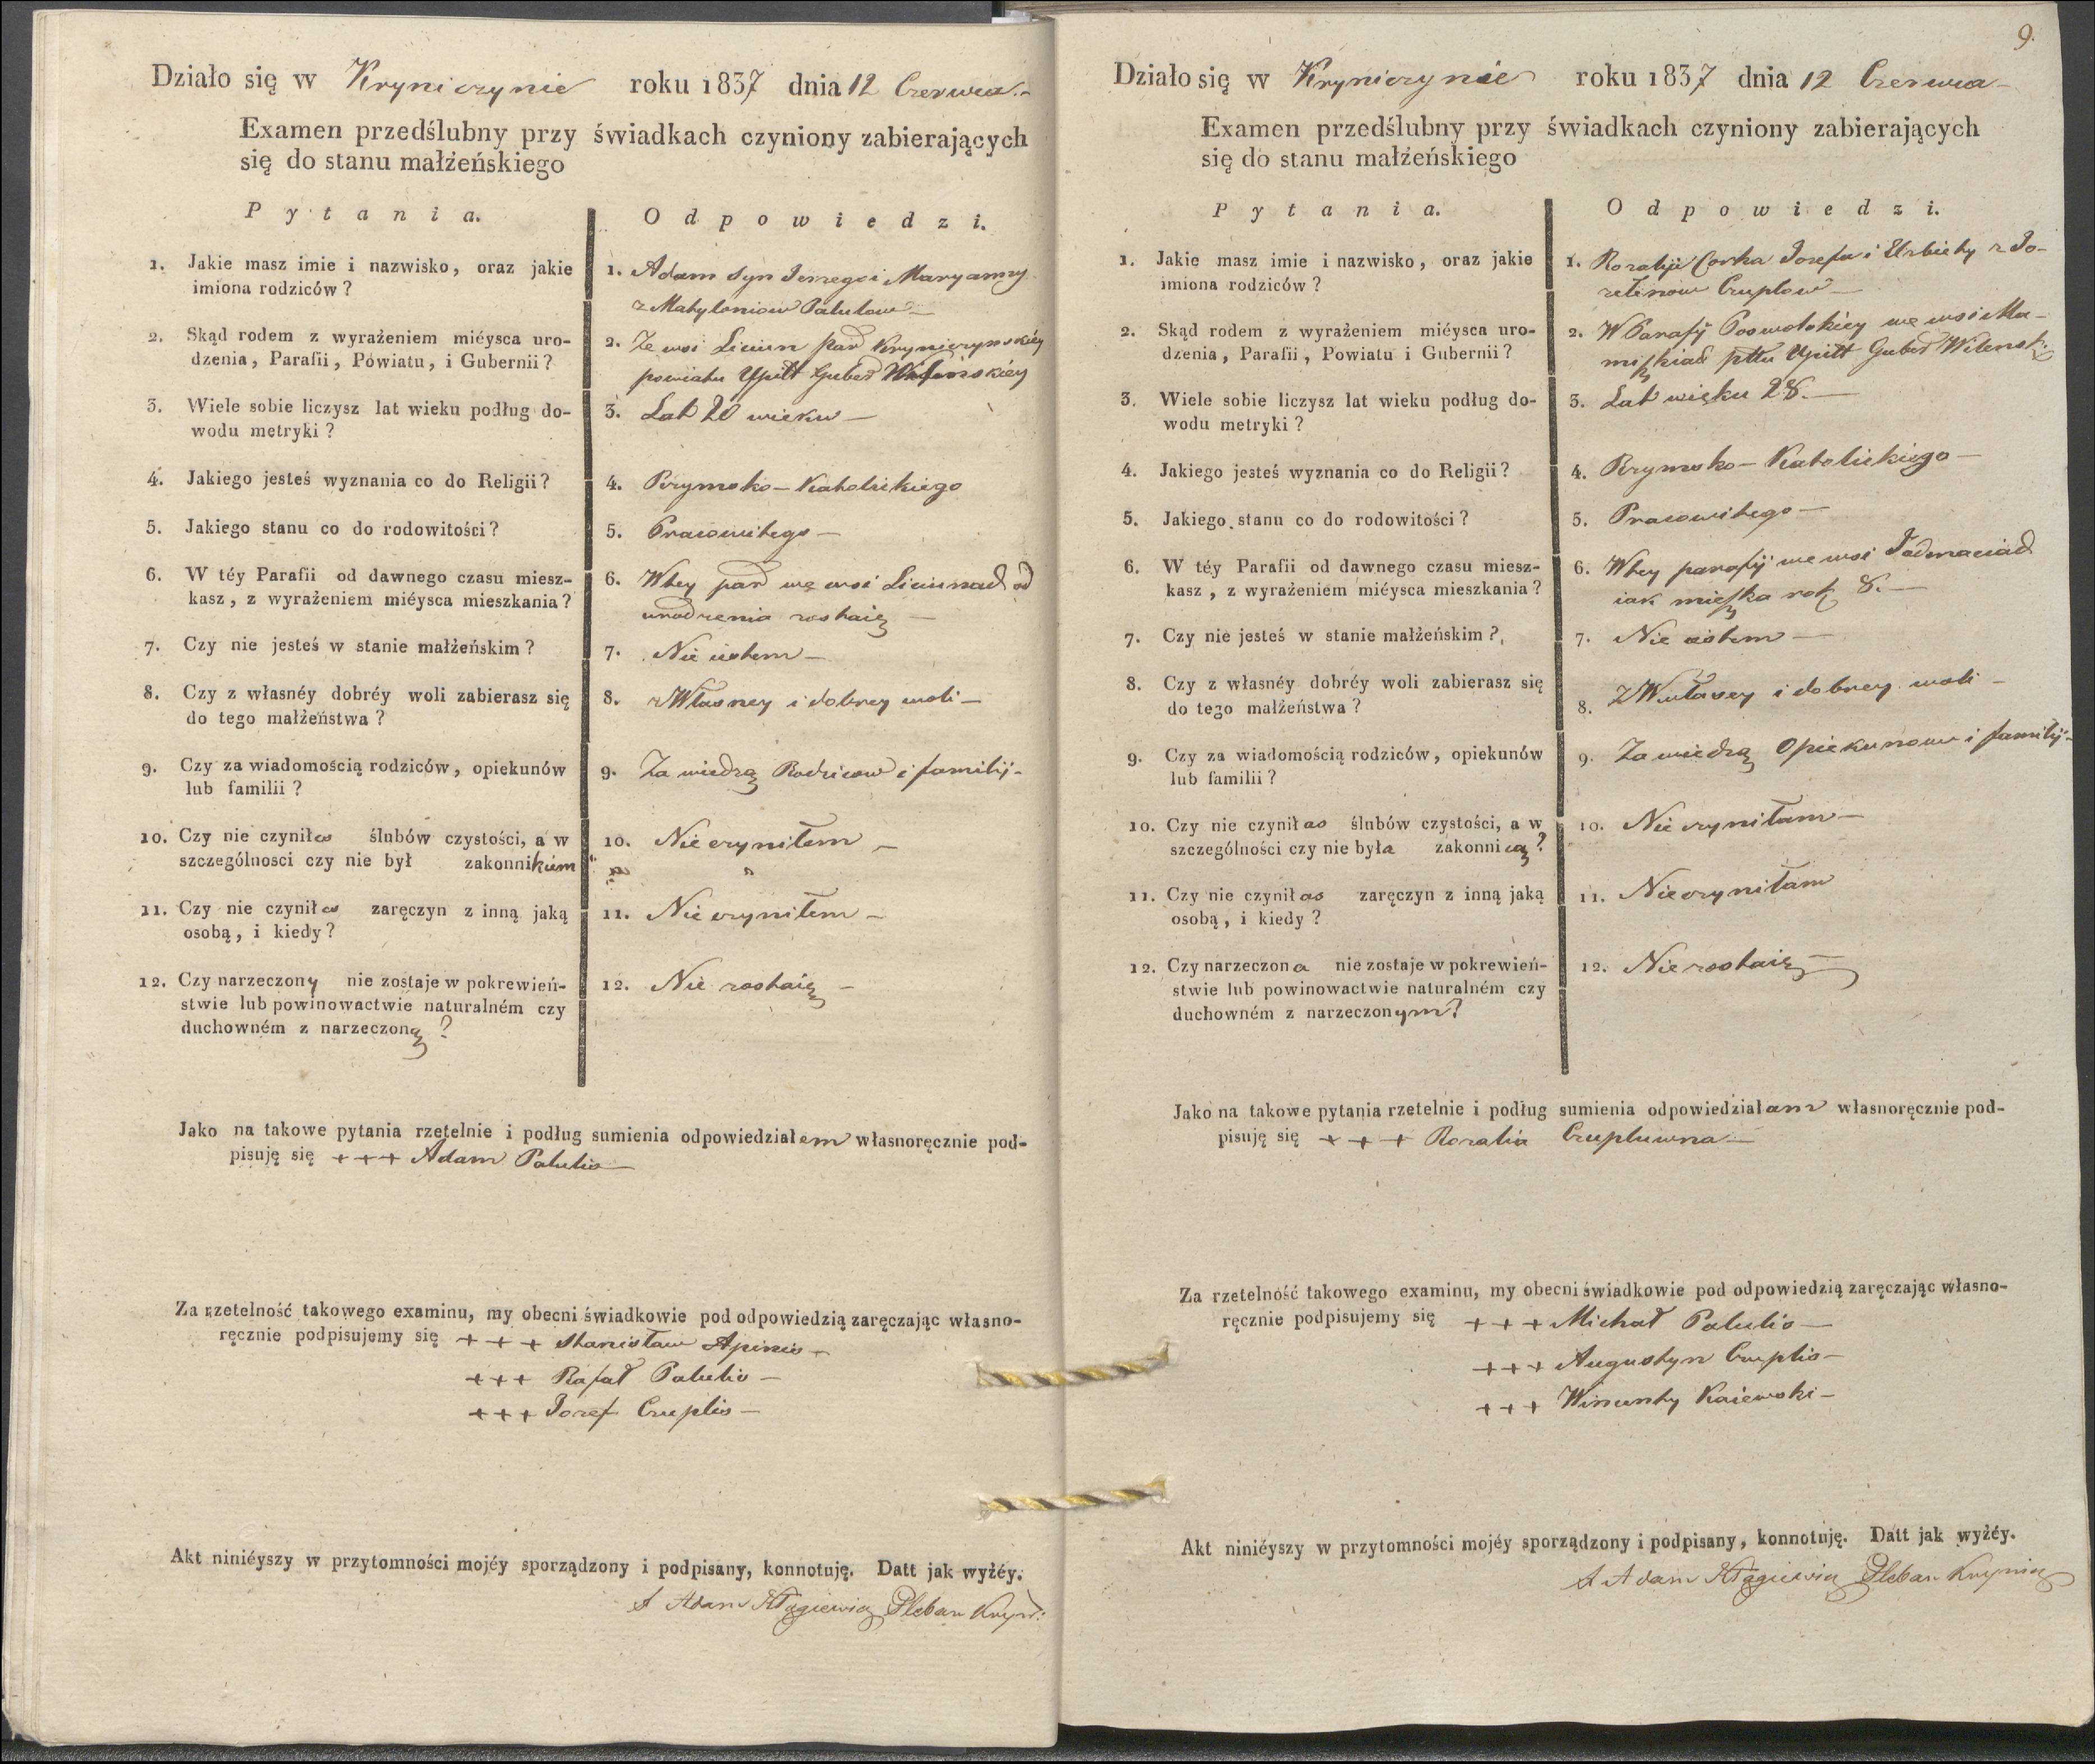 Działo się w Kryniczynie roku 1837 dnia 12 Czerwca.-
Examen przedślubny przy świadkach czyniony zabierających
się do stanu małżeńskiego
Pytania.
Odpowiedzi.
1. Jakie masz imie i nazwisko, oraz jakie
imiona rodziców?
1. Adam Syn Jerzego i Maryanny
z Matyloniow Palulow —
2. Skąd rodem z wyrażeniem miéysca uro-
dzenia, Parafii, Powiatu, i Gubernii?
2. Ze wsi Liciun par Kryniczynskiéy
powiatu Upitt Guber Wileńskiéy
3. Wiele sobie liczysz lat wieku podług do-
wodu metryki?
3. Lat 20 wieku —
4. Jakiego jesteś wyznania co do Religii?
4. Rzymsko-Katolickiego
5. Jakiego stanu co do rodowitości?
5. Pracowitego —
6. W téy Parafii od dawnego czasu miesz-
kasz, z wyrażeniem miéysca mieszkania?
6. W tey par we wsi Liciunach od
urodzenia zostaię —
7. Czy nie jesteś w stanie małżeńskim?
7. Nie iestem —
8. Czy z własnéy dobréy woli zabierasz się
do tego małżeństwa?
8. z Własney i dobrey woli —
9. Czy za wiadomością rodziców, opiekunów
lub familii?
9. Za wiedzą Rodzicow i familij -
10. Czy nie czyniłes ślubów czystości, a w
szczególnosci czy nie był zakonnikiem
10. Nie czyniłem —
11. Czy nie czyniłes zaręczyn z inną jaką
osobą, i kiedy?
11. Nie czyniłem —
12. Czy narzeczony nie zostaje w pokrewień-
stwie lub powinowactwie naturalném czy
duchowném z narzeczoną?
12. Nie zostaię —
Jako na takowe pytania rzetelnie i podług sumienia odpowiedziałem własnoręcznie pod-
pisuję się +++ Adam Palulis —
Za rzetelność takowego examinu, my obecni świadkowie pod odpowiedzią zaręczając własno-
ręcznie podpisujemy się +++ Stanisław Apinis —
+++ Rafał Palulis —
+++ Jozef Czuplis —
Akt niniéyszy w przytomności mojéy sporządzony i podpisany, konnotuję. Datt jak wyżéy.
X Adam Pleban Kryn:
9.
Działo się w Kryniczynie roku 1837 dnia 12 Czerwca —
Examen przedślubny przy świadkach czyniony zabierających
się do stanu małżeńskiego
Pytania.
Odpowiedzi.
1. Jakie masz imie i nazwisko, oraz jakie
imiona rodziców?
1. Rozalija Corka Josefa i Elzbiety z
Czuplow —
2. Skąd rodem z wyrażeniem miéysca uro-
dzenia, Parafii, Powiatu i Gubernii?
2. W Parafij Poswolskiey we wsi
pttu Upitt Guber Wilensk:
3. Wiele sobie liczysz lat wieku podług do-
wodu metryki?
3. Lat wieku 28. —
4. Jakiego jesteś wyznania co do Religii?
4. Rzymsko-Katolickiego —
5. Jakiego stanu co do rodowitości?
5. Pracowitego —
6. W téy Parafii od dawnego czasu miesz-
kasz, z wyrażeniem miéysca mieszkania?
6. W tey parafij we wsi
iak mieszka rok 8. —
7. Czy nie jesteś w stanie małżeńskim?
7. Nie iestem —
8. Czy z własnéy dobréy woli zabierasz się
do tego małżeństwa?
8. Z Własney i dobrey woli —
9. Czy za wiadomością rodziców, opiekunów
lub familii?
9. Za wiedzą Opiekunow i familij -
10. Czy nie czyniłas ślubów czystości, a w
szczególności czy nie była zakonnicą?
10. Nie czyniłam —
11. Czy nie czyniłas zaręczyn z inną jaką
osobą, i kiedy?
11. Nie czyniłam
12. Czy narzeczona nie zostaje w pokrewień-
stwie lub powinowactwie naturalném czy
duchowném z narzeczonym?
12. Nie zostaię —
Jako na takowe pytania rzetelnie i podług sumienia odpowiedziałam własnoręcznie pod-
pisuję się +++ Rozalia Czupluwna —
Za rzetelność takowego examinu, my obecni świadkowie pod odpowiedzią zaręczając własno-
ręcznie podpisujemy się +++ Michał Palulis —
+++ Augustyn Czuplis —
+++ Wincenty Kaiewski —
Akt niniéyszy w przytomności mojéy sporządzony i podpisany, konnotuję. Datt jak wyżéy.
X Adam Pleban